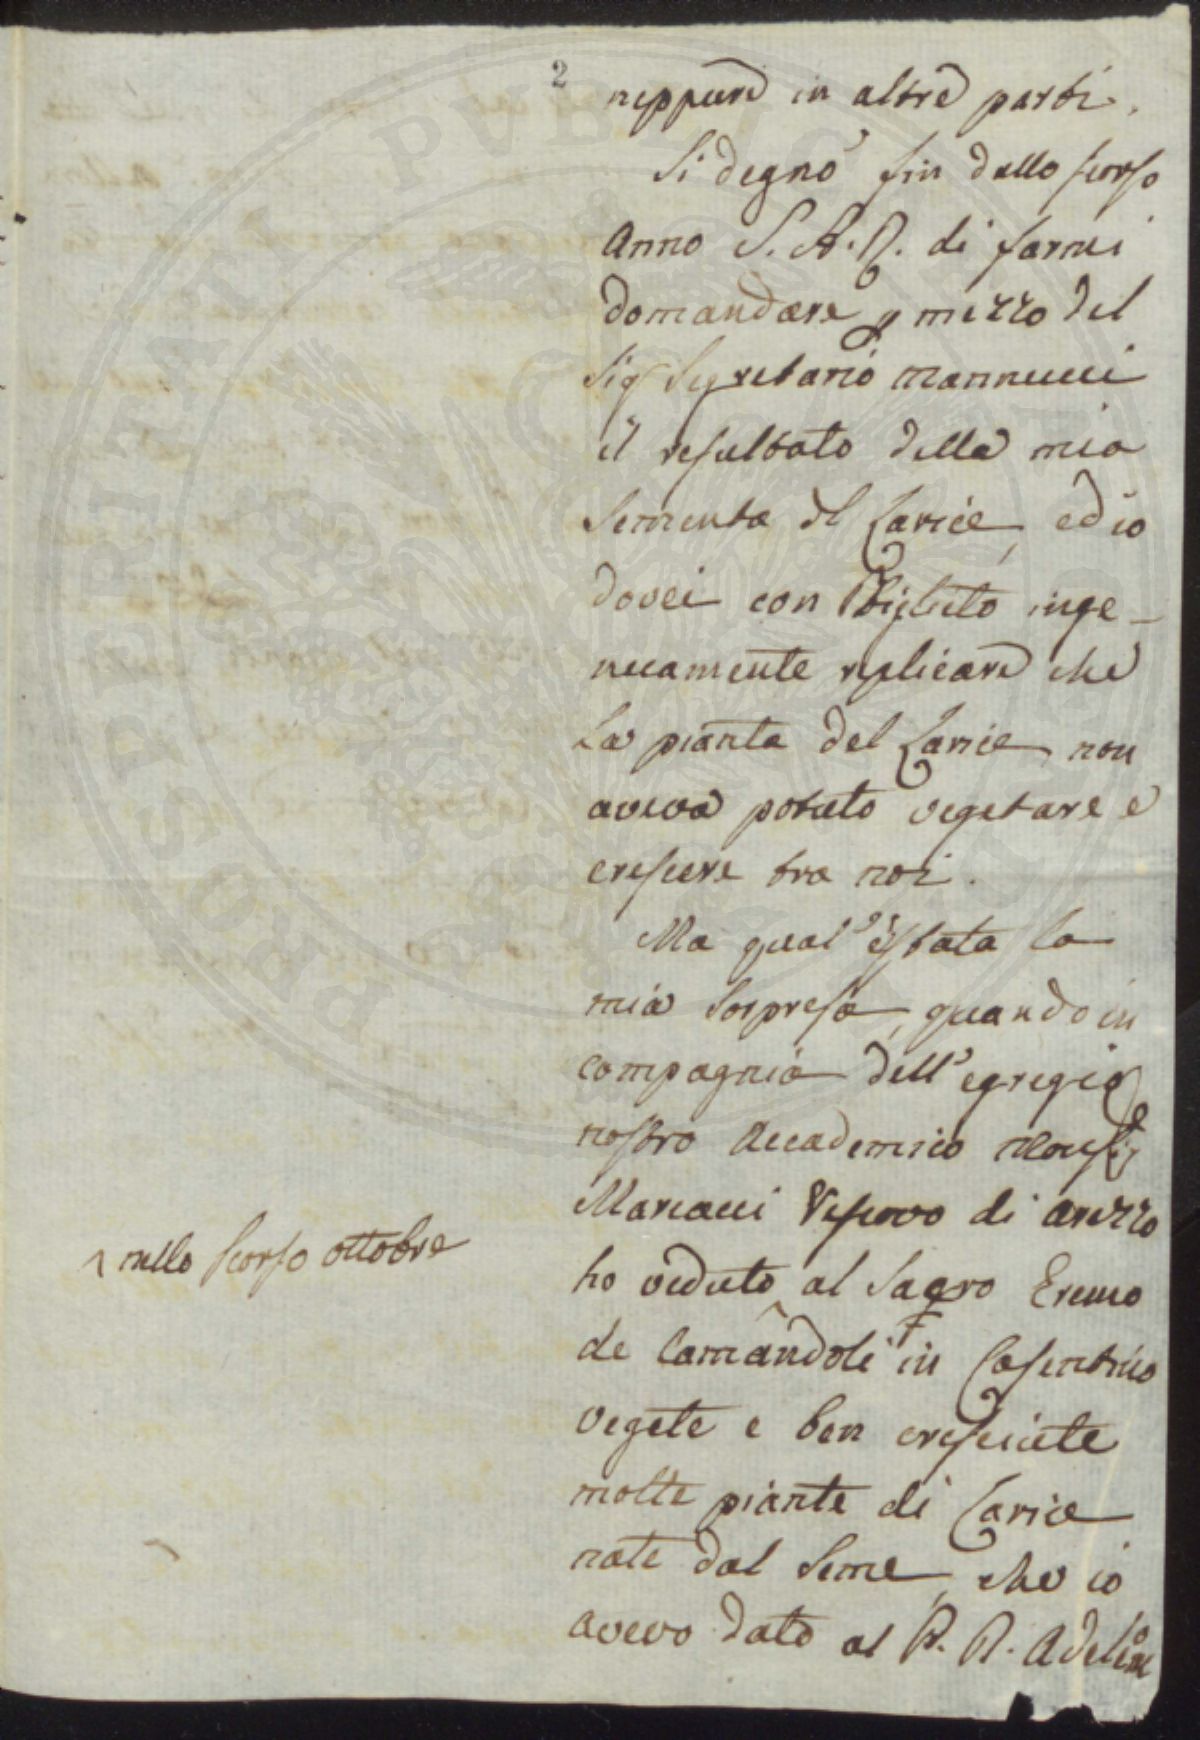 2
neppure in altre parti.
Si degnò fin dallo scorso
Anno S. A. R. di farmi
domandare p mezzo del
Sig Segretario Mannucci
il resultato della mia
Sementa del Larice, ed io
dovei con Biglieto inge-
nuamente replicare che
La pianta del Larice non
aveva potuto vegetare e
crescere tra noi.
Ma qual'è stata la
mia sorpresa, quando in
compagnia dell'egregio
nostro Accademico Monsig
Marcacci Vescovo di Arezzo
ho veduto al Sagro Eremo
de Camandoli in Casentino
nello scorso ottobre
vegete e ben cresciute
molte piante di Larice
nate dal seme, che io
avevo dato al P. R. Adelmo
PROSPERITATI PUBLICAE